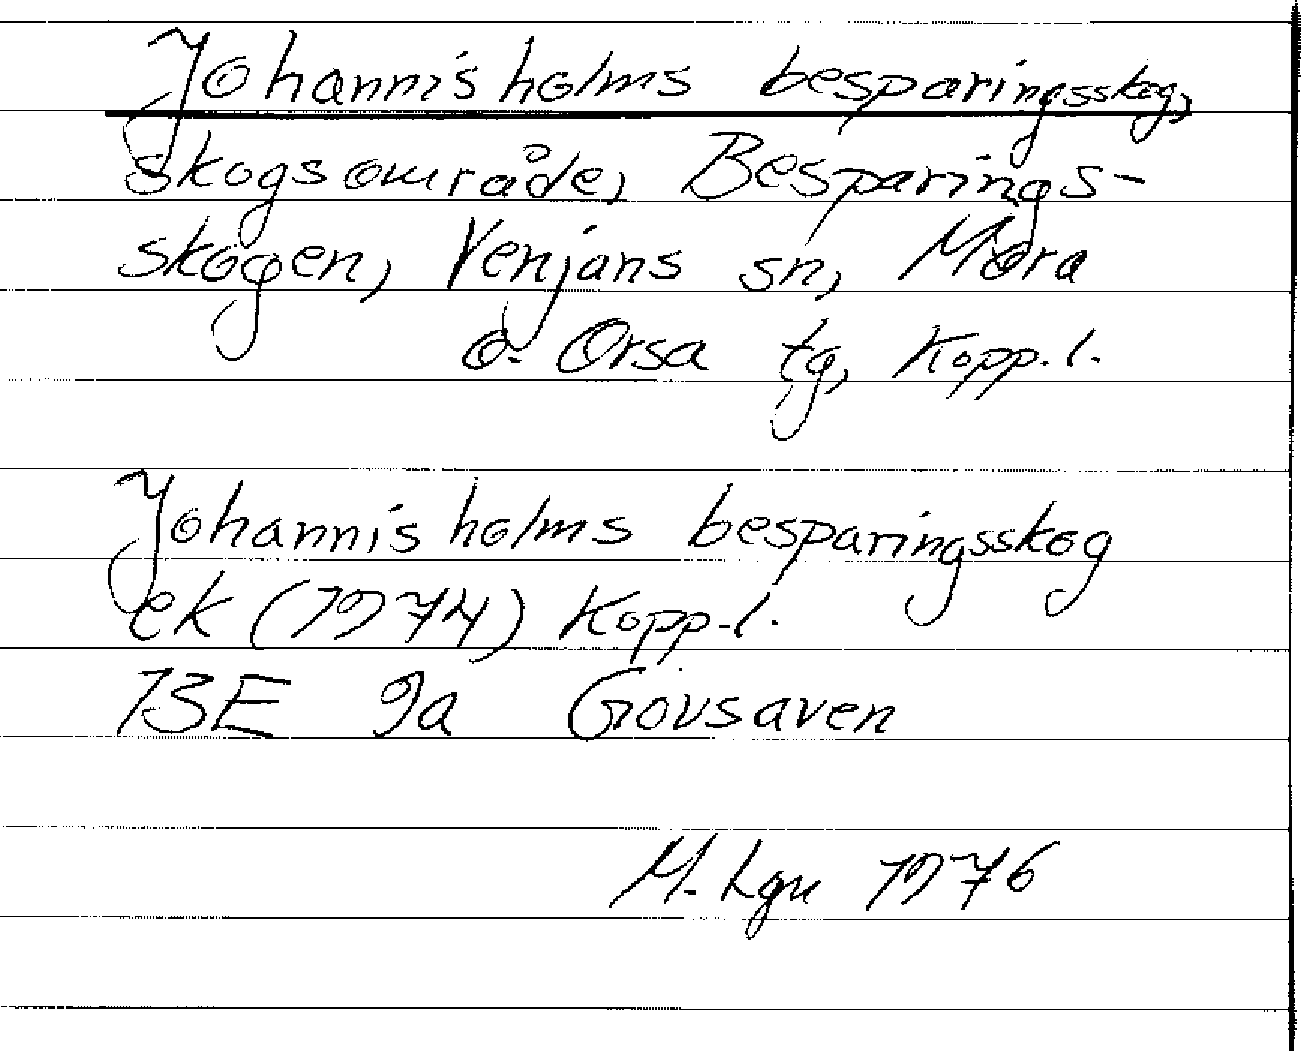 Johannisholms besparingsskog,
skogsområde, Besparings-
skogen, Venjans sn, Mora
o. Orsa tg, Kopp. l.
Johannisholms besparingsskog
ek (1974) Kopp. l.
13E 9a Gövsaven
M. Lgn 1976